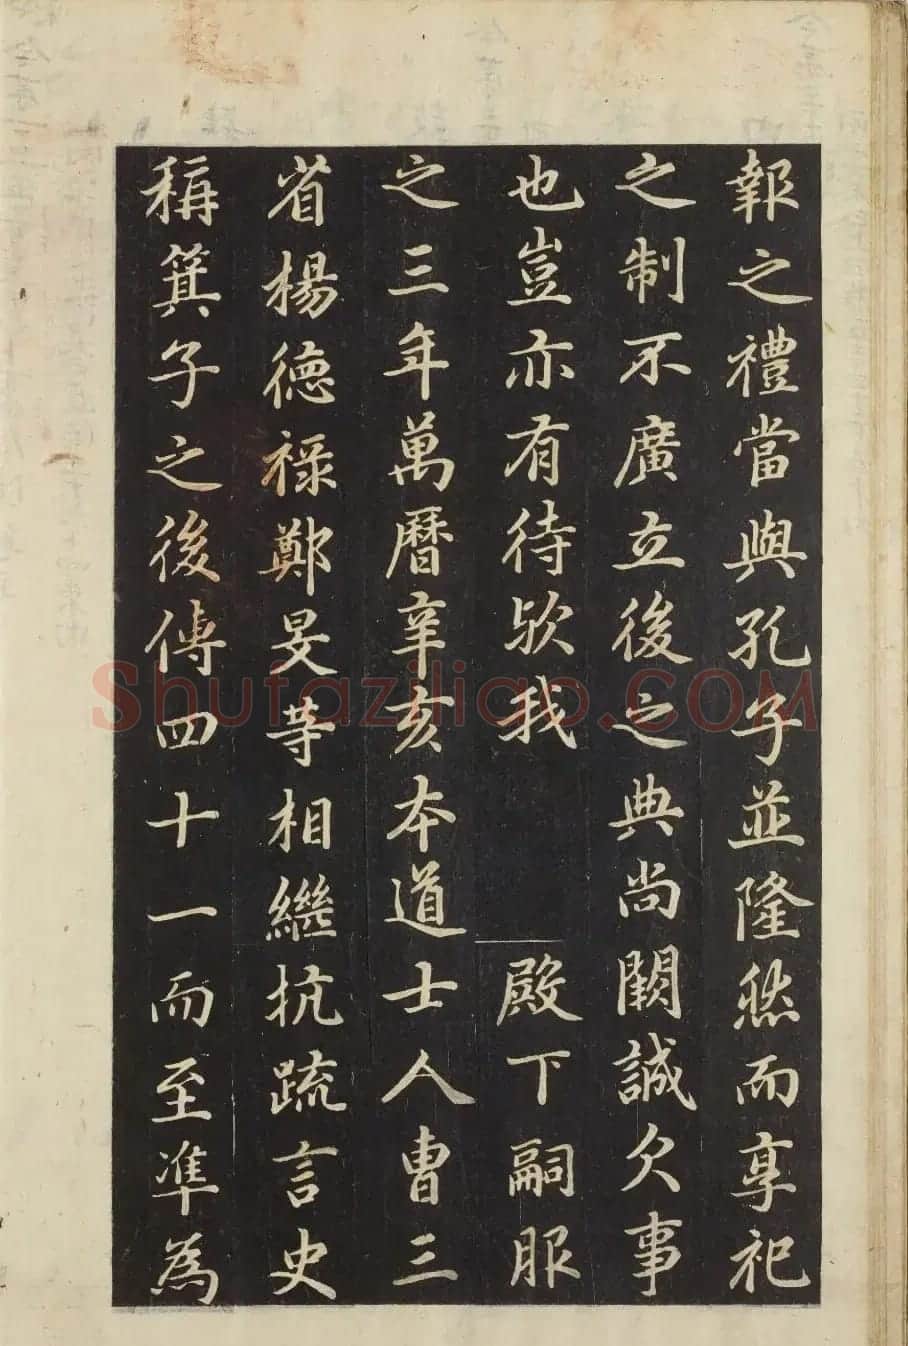 報之禮當與孔子並隆然而享祀
之制不廣立後之典尚闕誠欠事
也豈亦有待歟我 殿下嗣服
之三年萬曆辛亥本道士人曺三
省楊德祿鄭旻等相繼抗疏言史
稱箕子之後傳四十一而至準為
Shufaziliao.COM